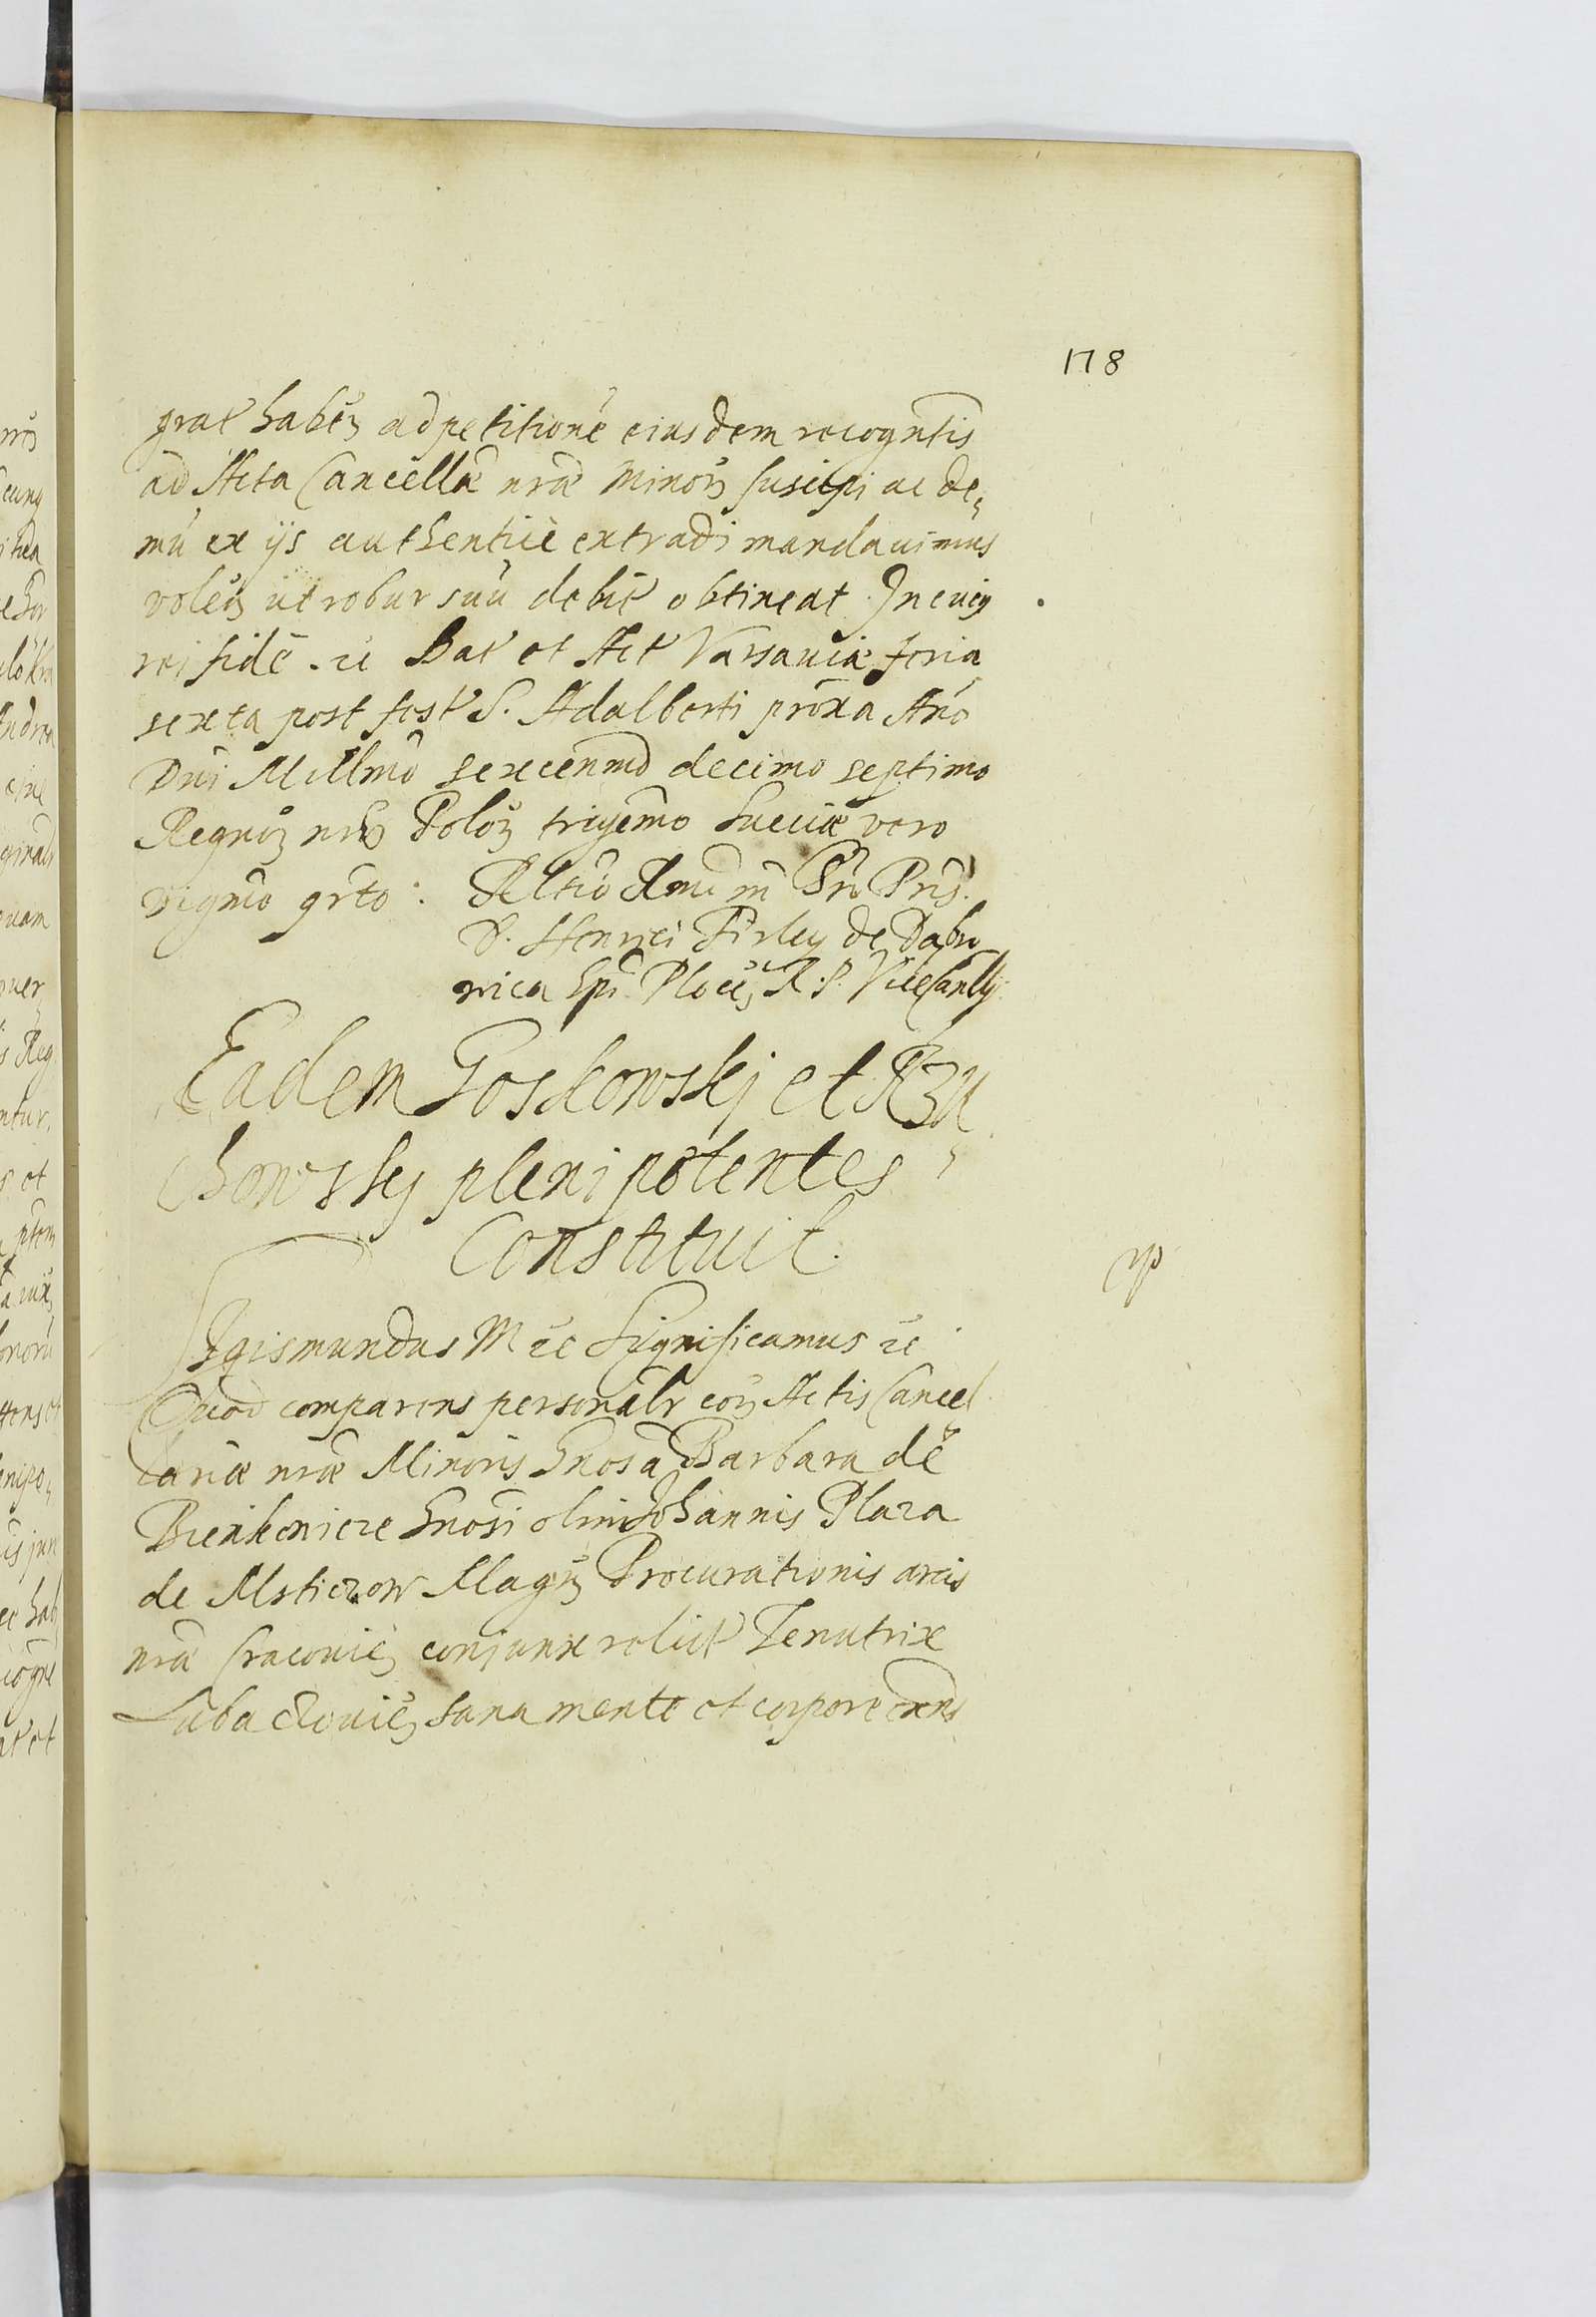 178
grat habeñ ad petitionē eiusdem recogntis
ad Acta Cancellæ nræ minoris suscipi ac de„
mũ ex ijs authentice extradi mandauimus
voleñ ut robur suũ debit obtineat. In cuiꝯ
rei fidē. ꝛc Dat et Act Varsauiæ feria
sexta post fest S. Adalberti proxa Año
Dni Millmo sexcenmo decimo septimo
Regnoꝝ nroꝝ Poloñ trigemo Sueciæ vero
vigmo qrto: Reltio Rmi in Chro Pris.
D. Henrici Firley de Dabro
wica Epi Plocen R. P. ViceCanlly
Eadem Goskowskj et Rzu
chowskj plenipotentes
Constituit.
Sigismundus III ꝛc Significamus ꝛc
Quod comparens personalr corã Actis Cancel
lariæ nræ Minoris Gnosa Barbara de
Bienkowicze Gnosi olim Johannis Plaza
de Msticzow Magni Procurationis arcis
nræ Cracovien conjunx relict Tenutrix
Lubaczouien sana mente et corpore exns